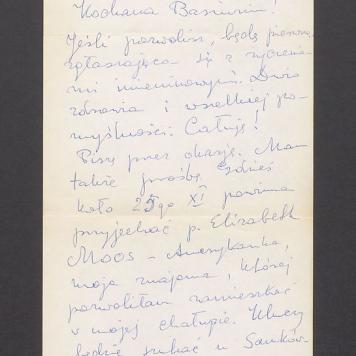 Kochana Basiuniu!
Jeśli pozwolisz, będę pierwszą
zgłaszającą się z życzenia-
mi imieninowymi. Dużo
zdrowia i wszelkiej po-
myślności. Całuję!
Piszę przez okazję. Mam
także prośbę. Gdzieś
koło 25go XI powinna
przyjechać p. Elizabeth
Moos - Amerykanka,
moja znajoma, której
pozwoliłam zamieszkać
w mojej chałupie. Kluczy
będzie szukać u